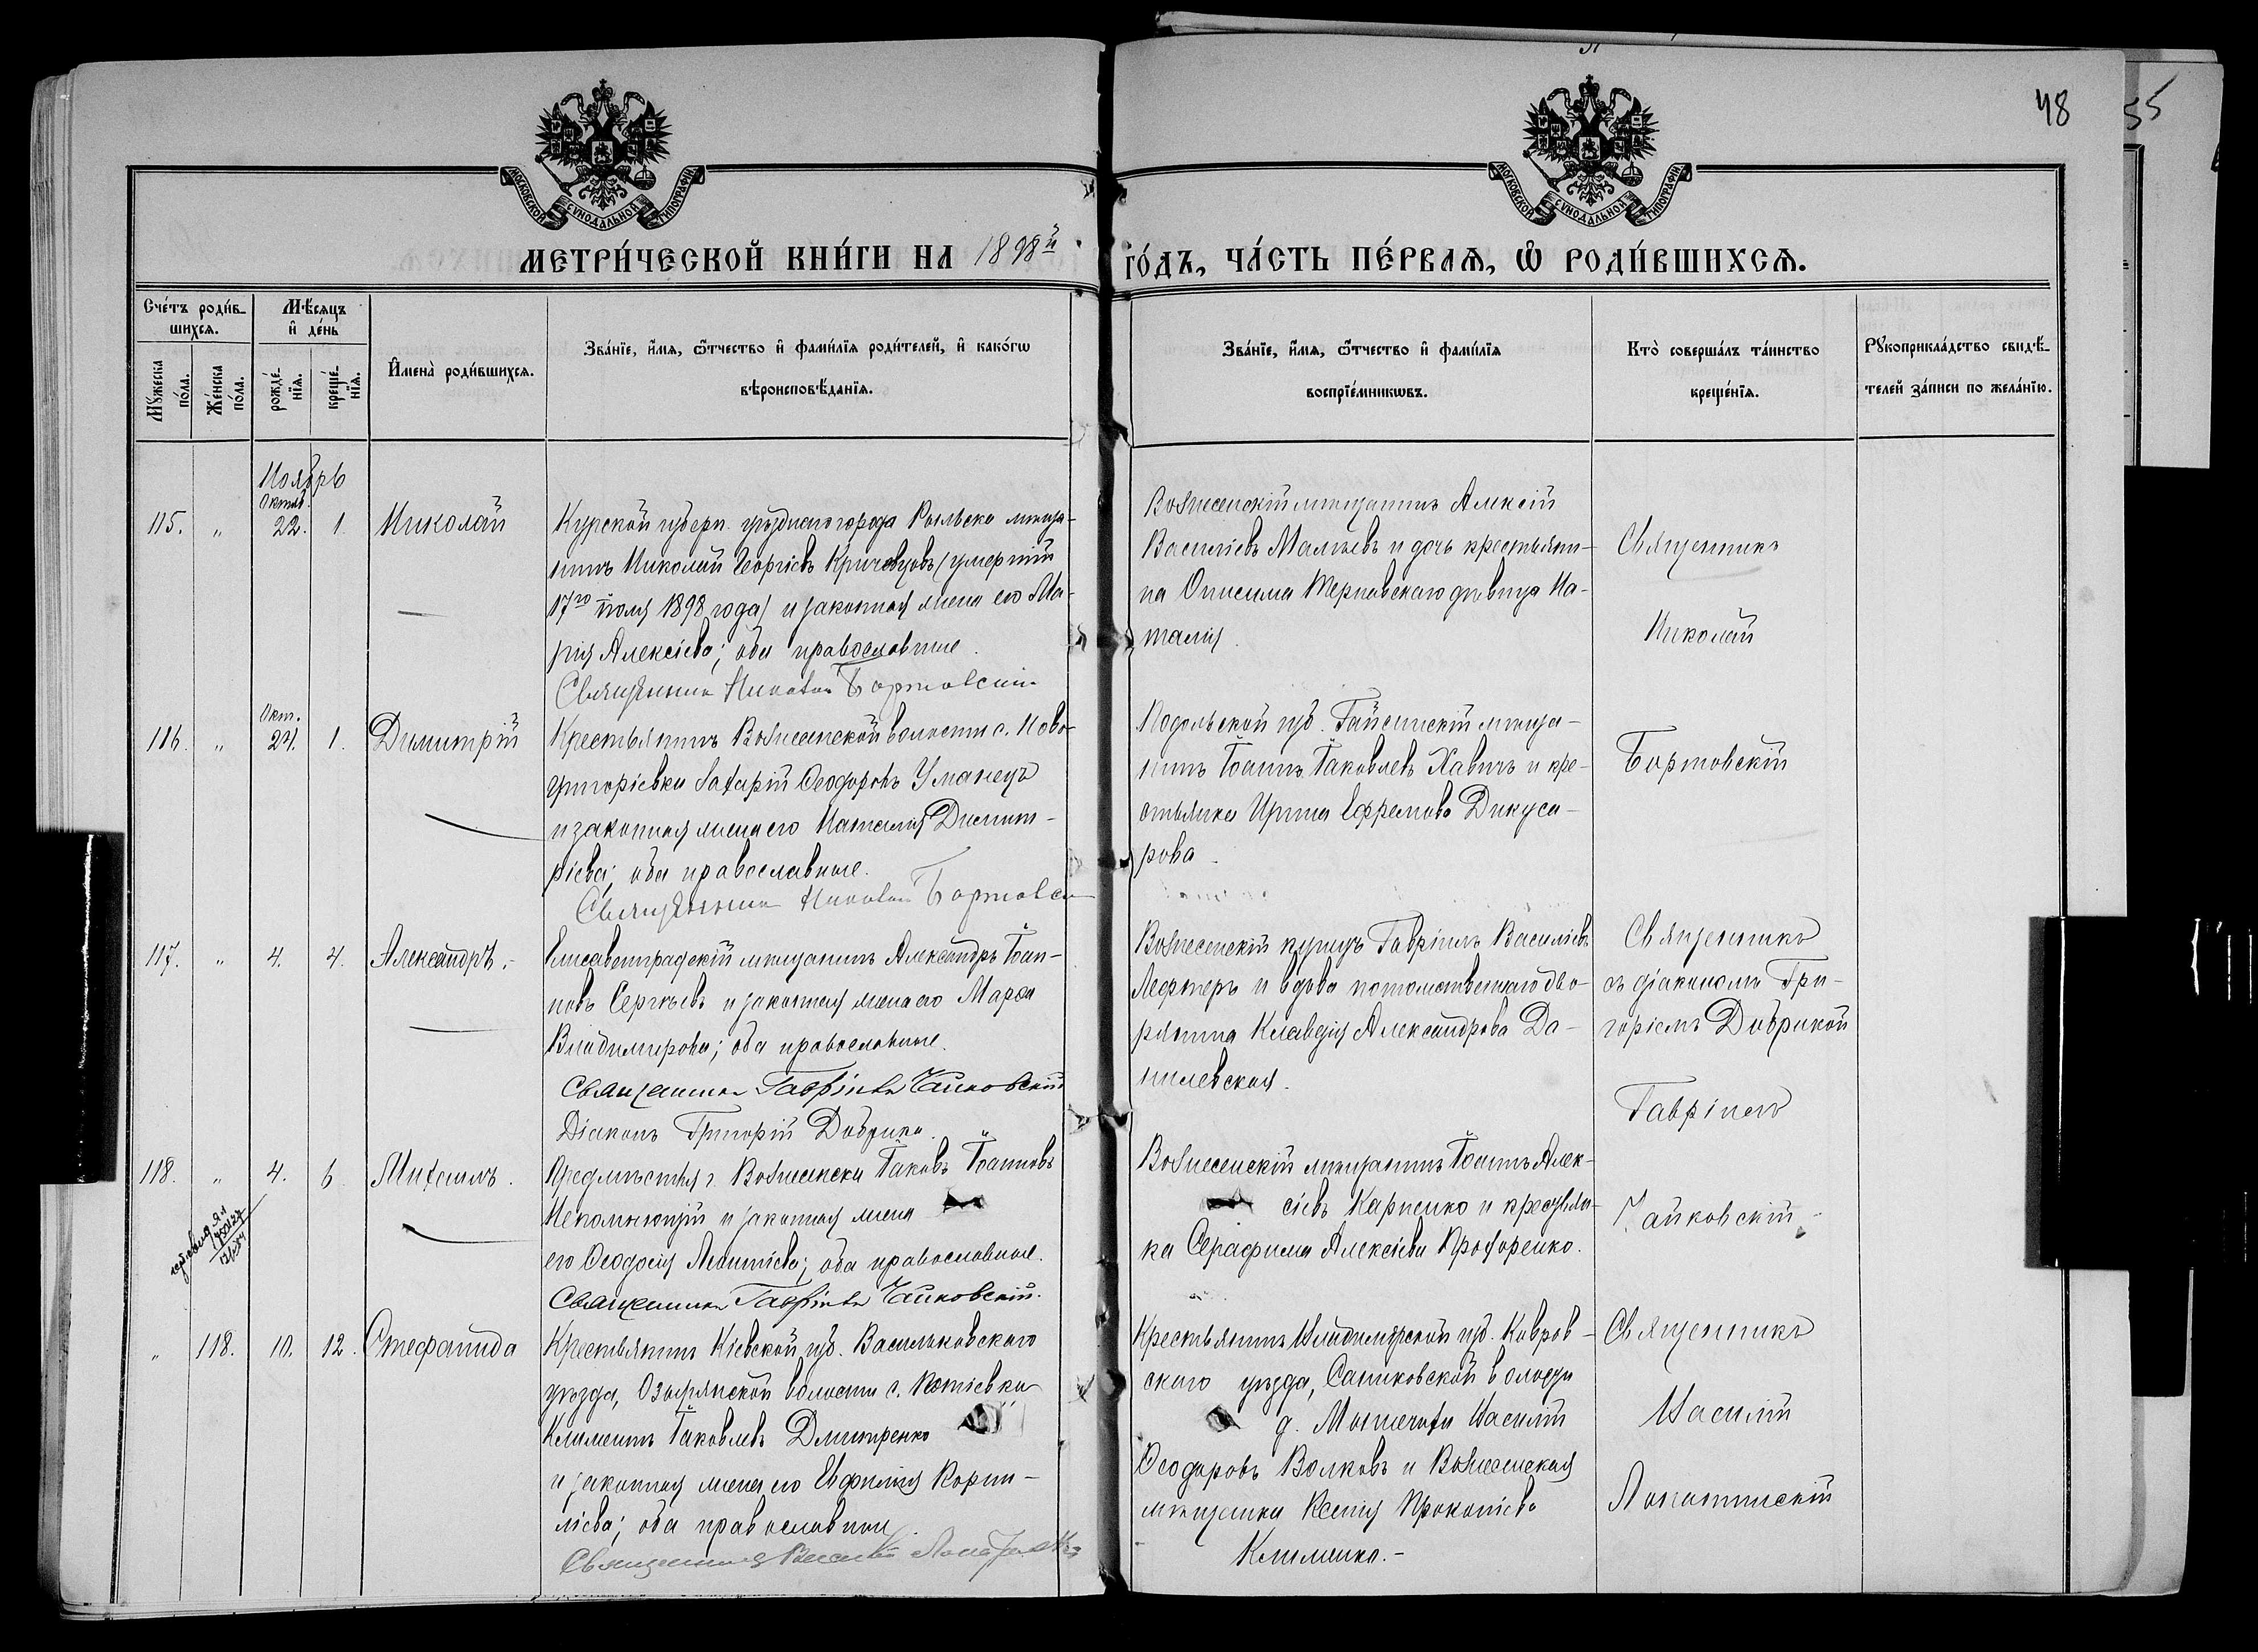 48
55
МОСКОВСКОЙ СѴНОДАЛЬНОЙ ТИПОГРАФІИ
МОСКОВСКОЙ СѴНОДАЛЬНОЙ ТИПОГРАФІИ
МЕТРИ́ЧЕСКОЙ КНИ́ГИ НА 1898й го́дъ, ЧА́СТЬ ПЕ́РВАѦ, Ѡ҆ РОДИ́ВШИХСѦ.
Сче́тъ роди́вшихсѧ.
Мꙋжеска по́ла.
Же́нска по́ла.
Мѣ́сѧцъ и҆ де́нь
рожде́нїѧ.
креще́нїѧ.
И҆мена̀ роди́вшихсѧ.
Зва́нїе, и҆́мѧ, ѻ҆́тчество и҆ фами́лїѧ роди́телей, и҆ како́гѡ
вѣроисповѣ́данїѧ.
Зва́нїе, и҆́мѧ, ѻ҆́тчество и҆ фами́лїѧ
воспрїе́мникѡвъ.
Кто̀ соверша́лъ та́инство
креще́нїѧ.
Рꙋкоприкла́дство свидѣ́-
телей за́писи по жела́нїю.
Ноябрь
Октяб.
115. „ 22. 1. Николай
Курской губерн. уѣзднаго города Рыльска мѣща-
нинъ Николай Георгіевъ Кричевцовъ (умершій
17го іюля 1898 года) и законная жена его Ма-
рія Алексіева; оба православные.
Священникъ Николай Бортовскій
Вознесенскій мѣщанинъ Алексій
Василіевъ Малѣевъ и дочь крестьяни-
на Онисима Терновскаго дѣвица На-
талія.
Священникъ
Николай
Бортовскій
Окт.
116. „ 24. 1. Димитрій
Крестьянинъ Вознесенской волости с. Ново-
григоріевки Захарій Ѳеодоровъ Уманецъ
и законная жена его Наталія Димит-
ріева; оба православные.
Священникъ Николай Бортовск
Подольской губ. Гайсинскій мѣща-
нинъ Іоаннъ Іаковлевъ Хавичъ и кре-
стьянка Ирина Ефремова Дикуса-
рова.
117. „ 4. 4. Александръ.
Елисаветградскій мѣщанинъ Александръ Іоан-
новъ Сергѣевъ и законная жена его Марѳа
Владимирова; оба православные.
Священникъ Гавріилъ Чайковскій
Діаконъ Григорій Добрика.
Вознесенскій купецъ Гавріилъ Василіевъ
Лефтеръ и вдова потомственнаго дво-
рянина Клавдія Александрова Да-
нилевская.
Священникъ
съ діакономъ Гри-
горіемъ Добрикой
Гавріилъ
Чайковскій
118. „ 4. 6. Михаилъ.
Предмѣстья г. Вознесенска Іаковъ Іоанновъ
Непомнющій и законная жена
его Ѳеодосія Леонтіева; оба православные.
Священникъ Гавріилъ Чайковскій.
Вознесенскій мѣщанинъ Іоаннъ Алек-
сіевъ Карпенко и крестьян-
ка Серафима Алексіева Прохоренко.
„ 118. 10. 12. Стефанида
Крестьянинъ Кіевской губ. Васильковскаго
уѣзда, Озирянской волости с. Потіевки
Климентъ Іаковлевъ Дмитренко
и законная жена его Евфимія Корни-
ліева; оба православные.
Священникъ Василій
Крестьянинъ Владимірской губ. Ковров-
скаго уѣзда, Санниковской волости
д. Мышечихи Василій
Ѳеодоровъ Волковъ и Вознесенская
мѣщанка Ксенія Прокопіева
Клименко.-
Священникъ
Василій
Лопатинскій